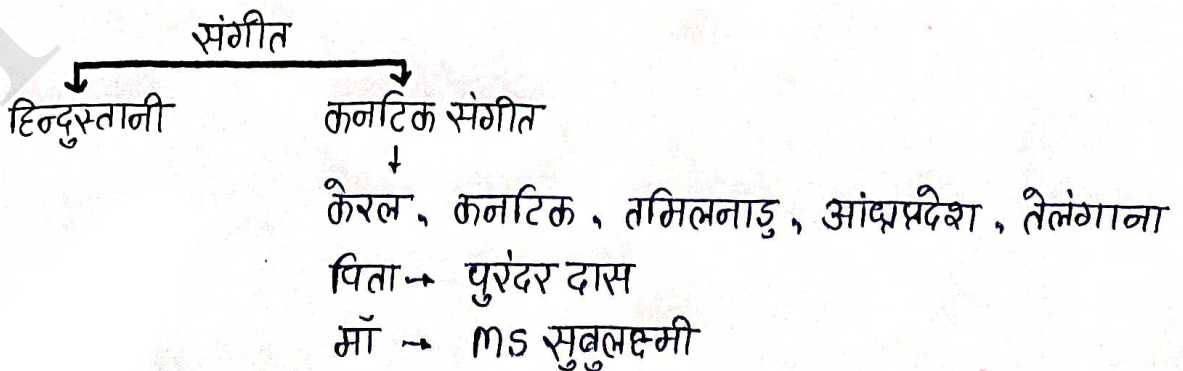 संगीत
हिन्दुस्तानी कर्नाटिक संगीत
↓
केरल, कर्नाटिक, तमिलनाडु, आंध्रप्रदेश, तेलंगाना
पिता → पुरंदर दास
माँ → MS सुबुलक्ष्मी